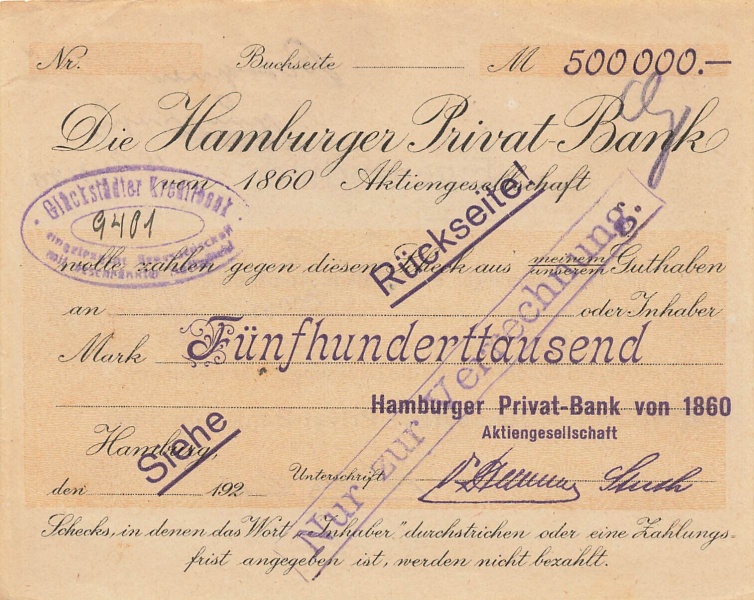 Nr. Buchseite M 500 000.—
Die Hamburger Privat-Bank
von 1860 Aktiengesellschaft
Glückstädter Kreditbank
9401
eingetragene Genossenschaft
mit beschränkter
wolle zahlen gegen diesen Check aus meinem unserem Guthaben
an oder Inhaber
Mark Fünfhunderttausend
Hamburger Privat-Bank von 1860
Aktiengesellschaft
Hamburg,
den 192 Unterschrift
Siehe Rückseite!
Nur zur Verrechnung.
Schecks, in denen das Wort „Inhaber" durchstrichen oder eine Zahlungs-
frist angegeben ist, werden nicht bezahlt.